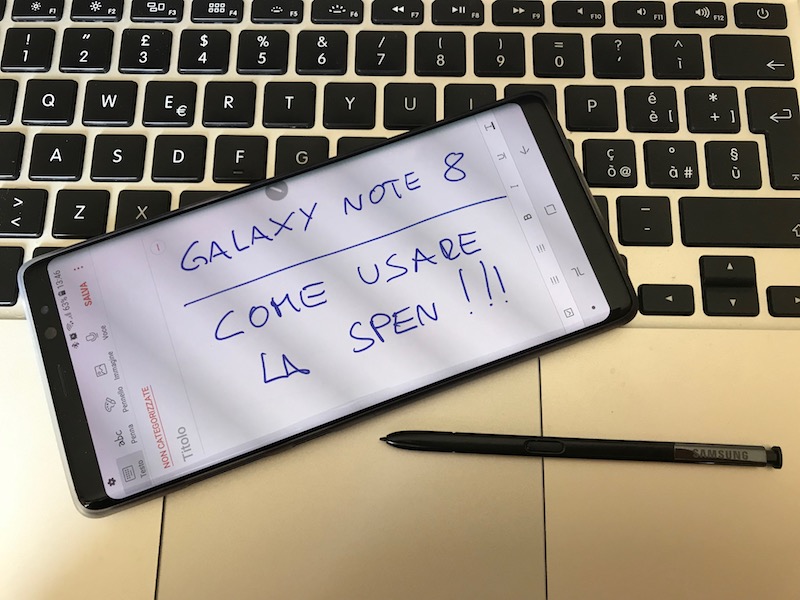 F1 F2 F3 F4 F5 F6 F7 F8 F9 F10 F11 F12
! " £ $ % & / ( ) = ? ^
1 2 3 4 5 6 7 8 9 0 ' ì
Q W E € R T Y U I P é è [ * + ]
A S D F G ç ò @ ° à # § ù
> < Z X : . _ -
GALAXY NOTE 8
COME USARE
LA SPEN !!!
13:46
63%
SALVA
Voce
Immagine
Pennello
abc
Penna
Testo
NON CATEGORIZZATE
Titolo
T
I
B
SAMSUNG